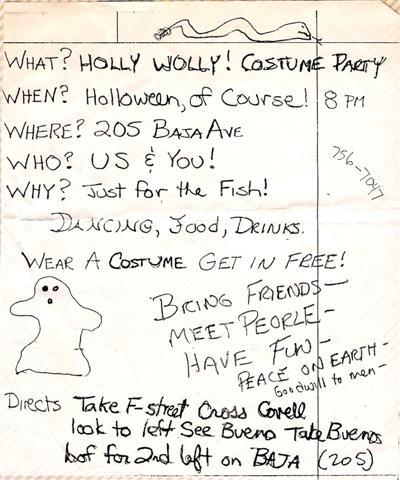 WHAT? HOLLY WOLLY! COSTUME PARTY
WHEN? Holloween, of Course! 8 PM
WHERE? 205 BAJA AVE
WHO? US & YOU!
756-7047
WHY? Just for the Fish!
DANCING, Food, DRINKS.
WEAR A COSTUME GET IN FREE!
BRING FRIENDS—
MEET PEOPLE-
HAVE FUN-
PEACE ON EARTH-
Goodwill to men-
Directs Take F-street Cross Covell
look to left See Bueno Take Buenos
lof for 2nd left on BAJA (205)